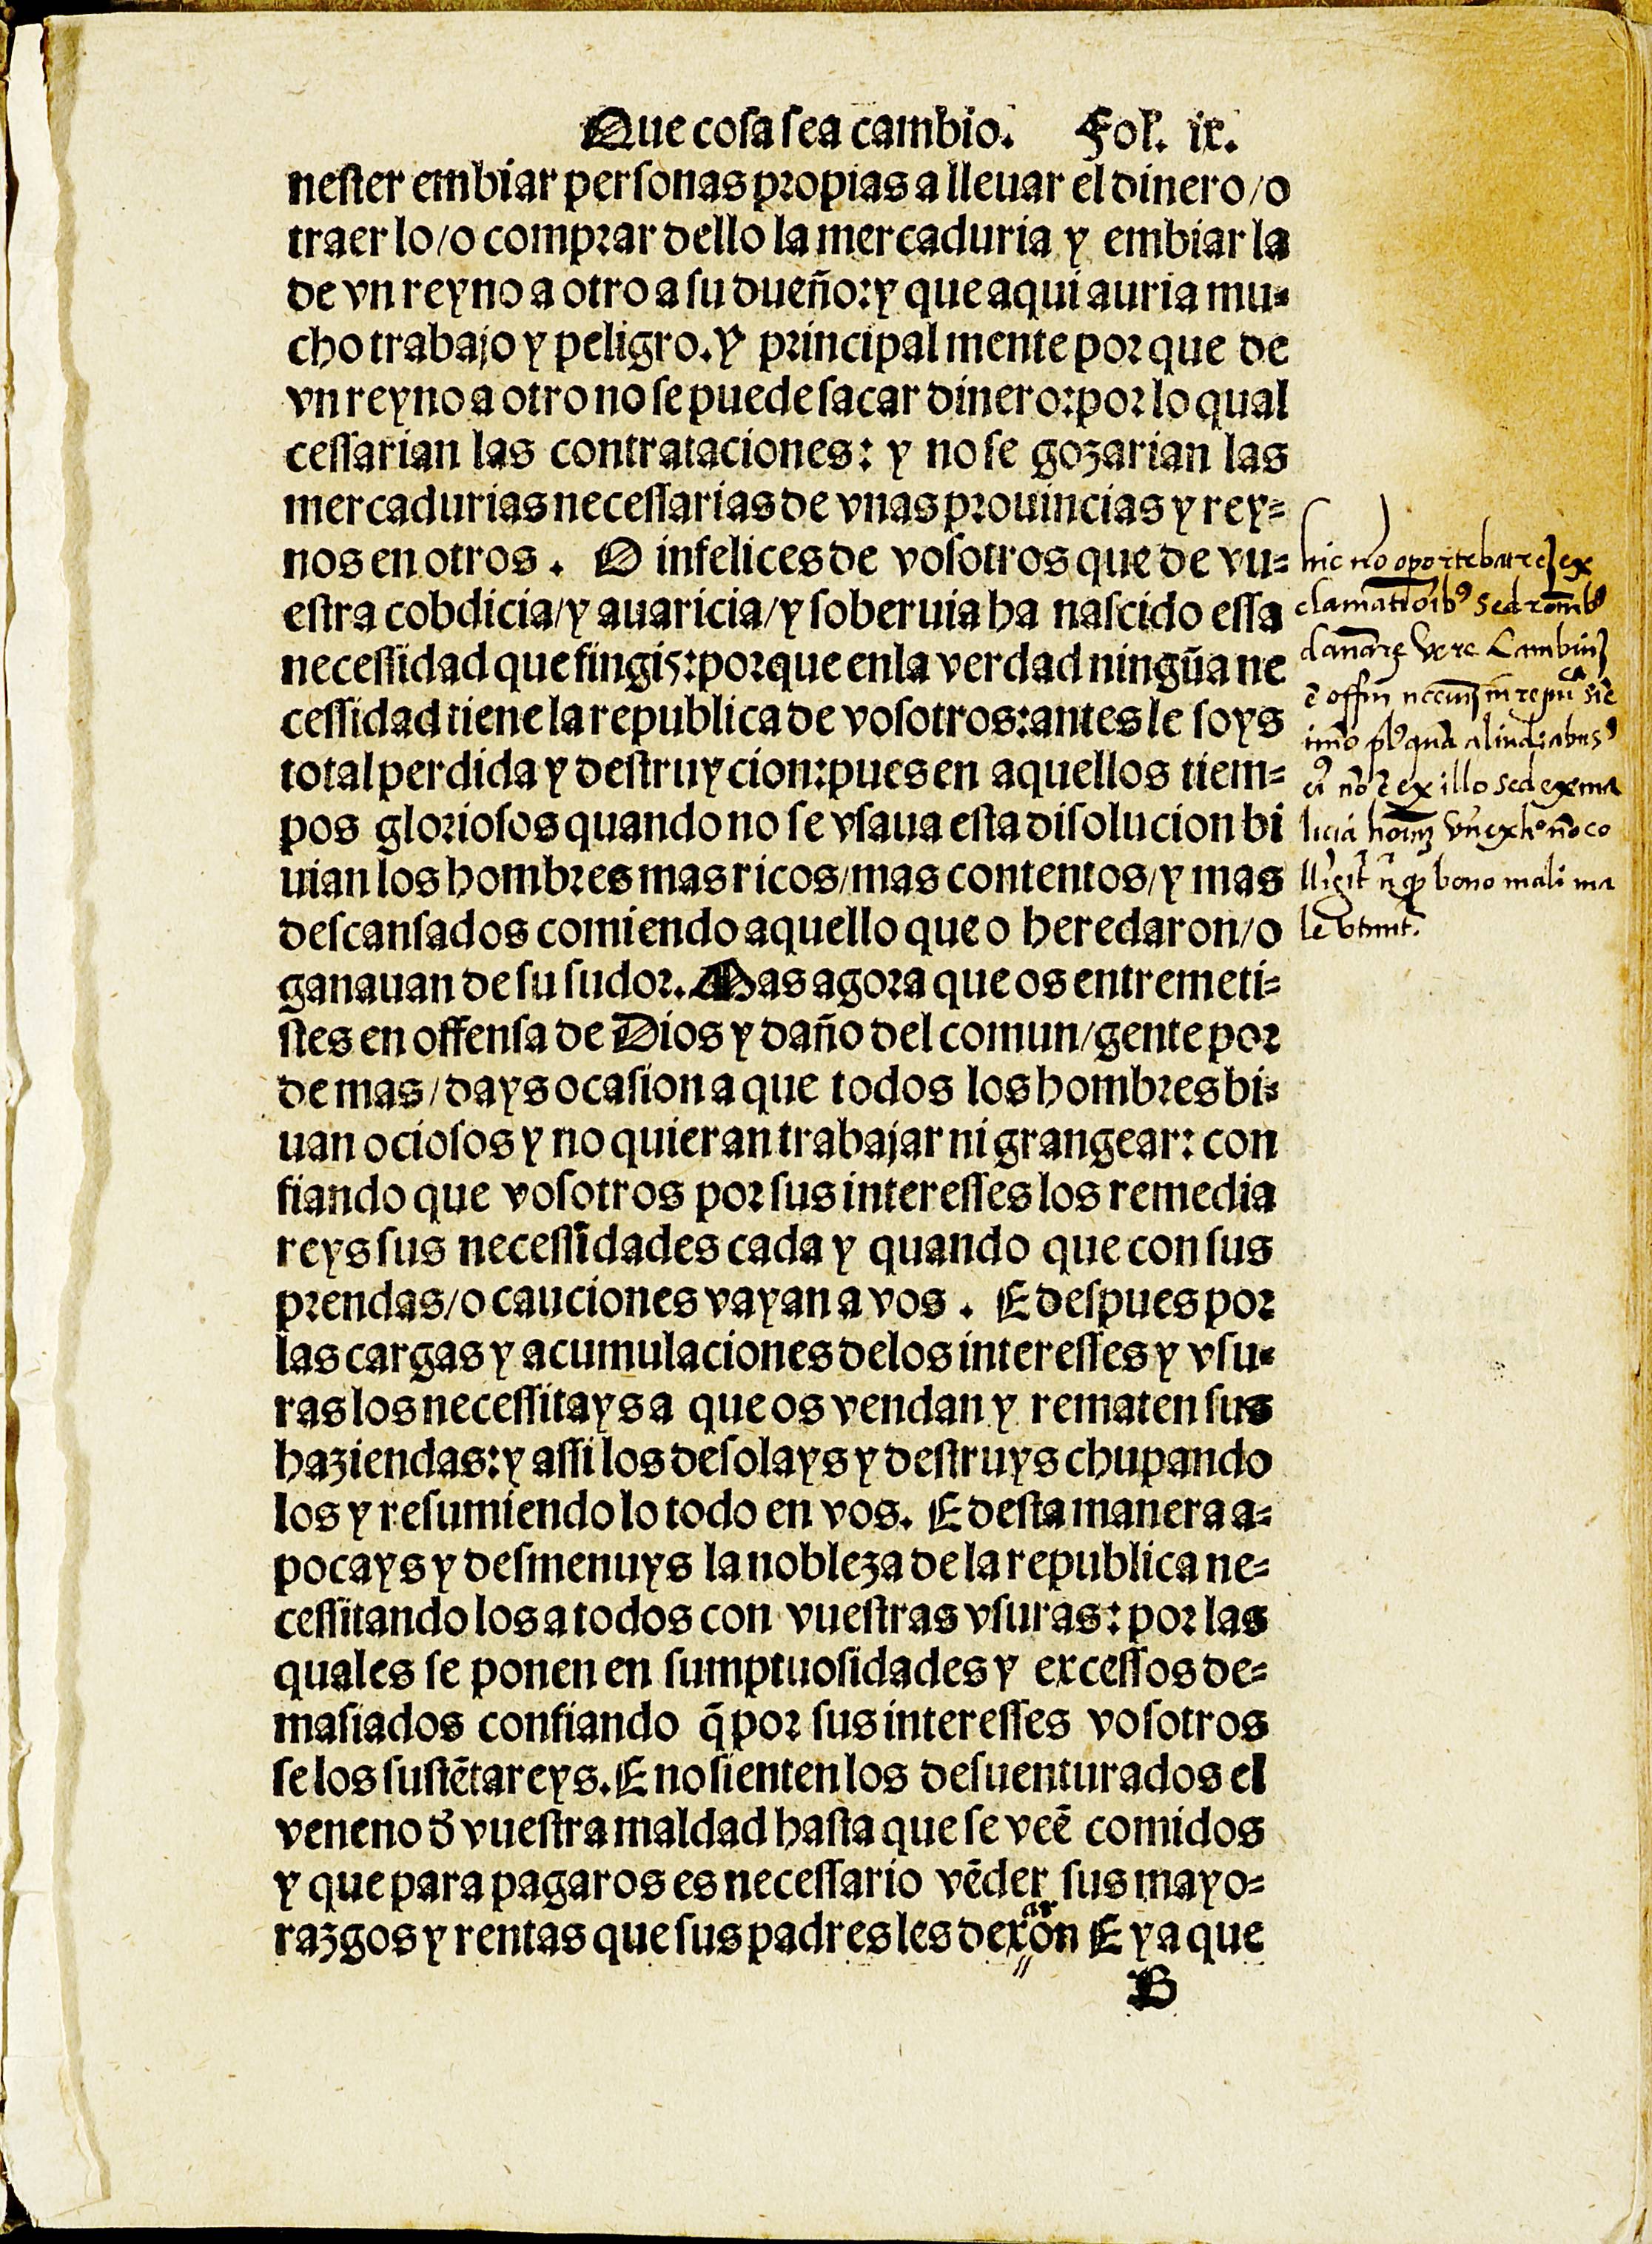 Que cosa sea cambio. Fol. ix.
nester embiar personas propias a lleuar el dinero/o
traer lo/o comprar dello la mercaduria y embiar la
de vn reyno a otro a su dueño:y que aqui auria mu=
cho trabajo y peligro. Y principal mente por que de
vn reyno a otro no se puede sacar dinero:por lo qual
cessarian las contrataciones: y no se gozarian las
mercadurias necessarias de vnas prouincias y rey=
nos en otros. O infelices de vosotros que de vu=
estra cobdicia/y auaricia/y soberuia ha nascido essa
necessidad que fingis:porque enla verdad ningũa ne
cessidad tiene la republica de vosotros:antes le soys
total perdida y destruycion:pues en aquellos tiem=
pos gloriosos quando no se vsaua esta disolucion bi
uian los hombres mas ricos/mas contentos/y mas
descansados comiendo aquello que o heredaron/o
ganauan de su sudor. Mas agora que os entremeti=
stes en offensa de Dios y daño del comun/gente por
de mas/days ocasion a que todos los hombres bi=
uan ociosos y no quieran trabajar ni grangear: con
fiando que vosotros por sus interesses los remedia
reys sus necessidades cada y quando que con sus
prendas/o cauciones vayan a vos. E despues por
las cargas y acumulaciones delos interesses y vsu=
ras los necessitays a que os vendan y rematen sus
haziendas:y assi los desolays y destruys chupando
los y resumiendo lo todo en vos. E desta manera a=
pocays y desmenuys la nobleza de la republica ne=
cessitando los a todos con vuestras vsuras: por las
quales se ponen en sumptuosidades y excessos de=
masiados confiando q̃ por sus interesses vosotros
se los sustẽtareys. E no sienten los desuenturados el
veneno d̃ vuestra maldad hasta que se veẽ comidos
y que para pagaros es necessario vẽder sus mayo=
razgos y rentas que sus padres les dexarõn E ya que
B
hic no oportebat ex
sed
vere
ex illo sed ex ma
licia
bono mali ma
le